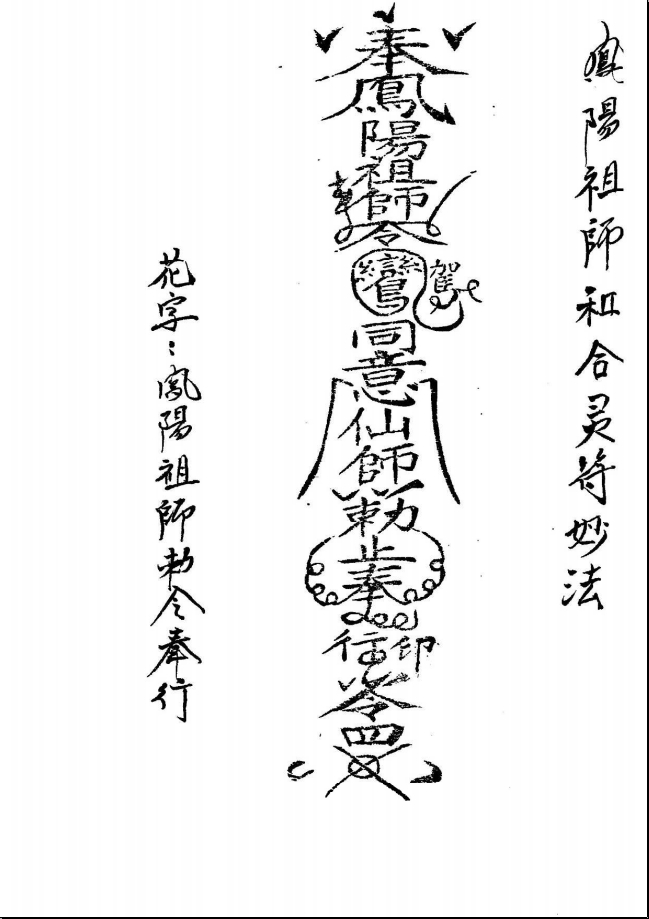 鳳陽祖師和合灵符妙法
奉鳳陽祖師令
奉
鸞駕
同意仙師勅
止奉
行印
令四
花字：鳳陽祖師勅令奉行